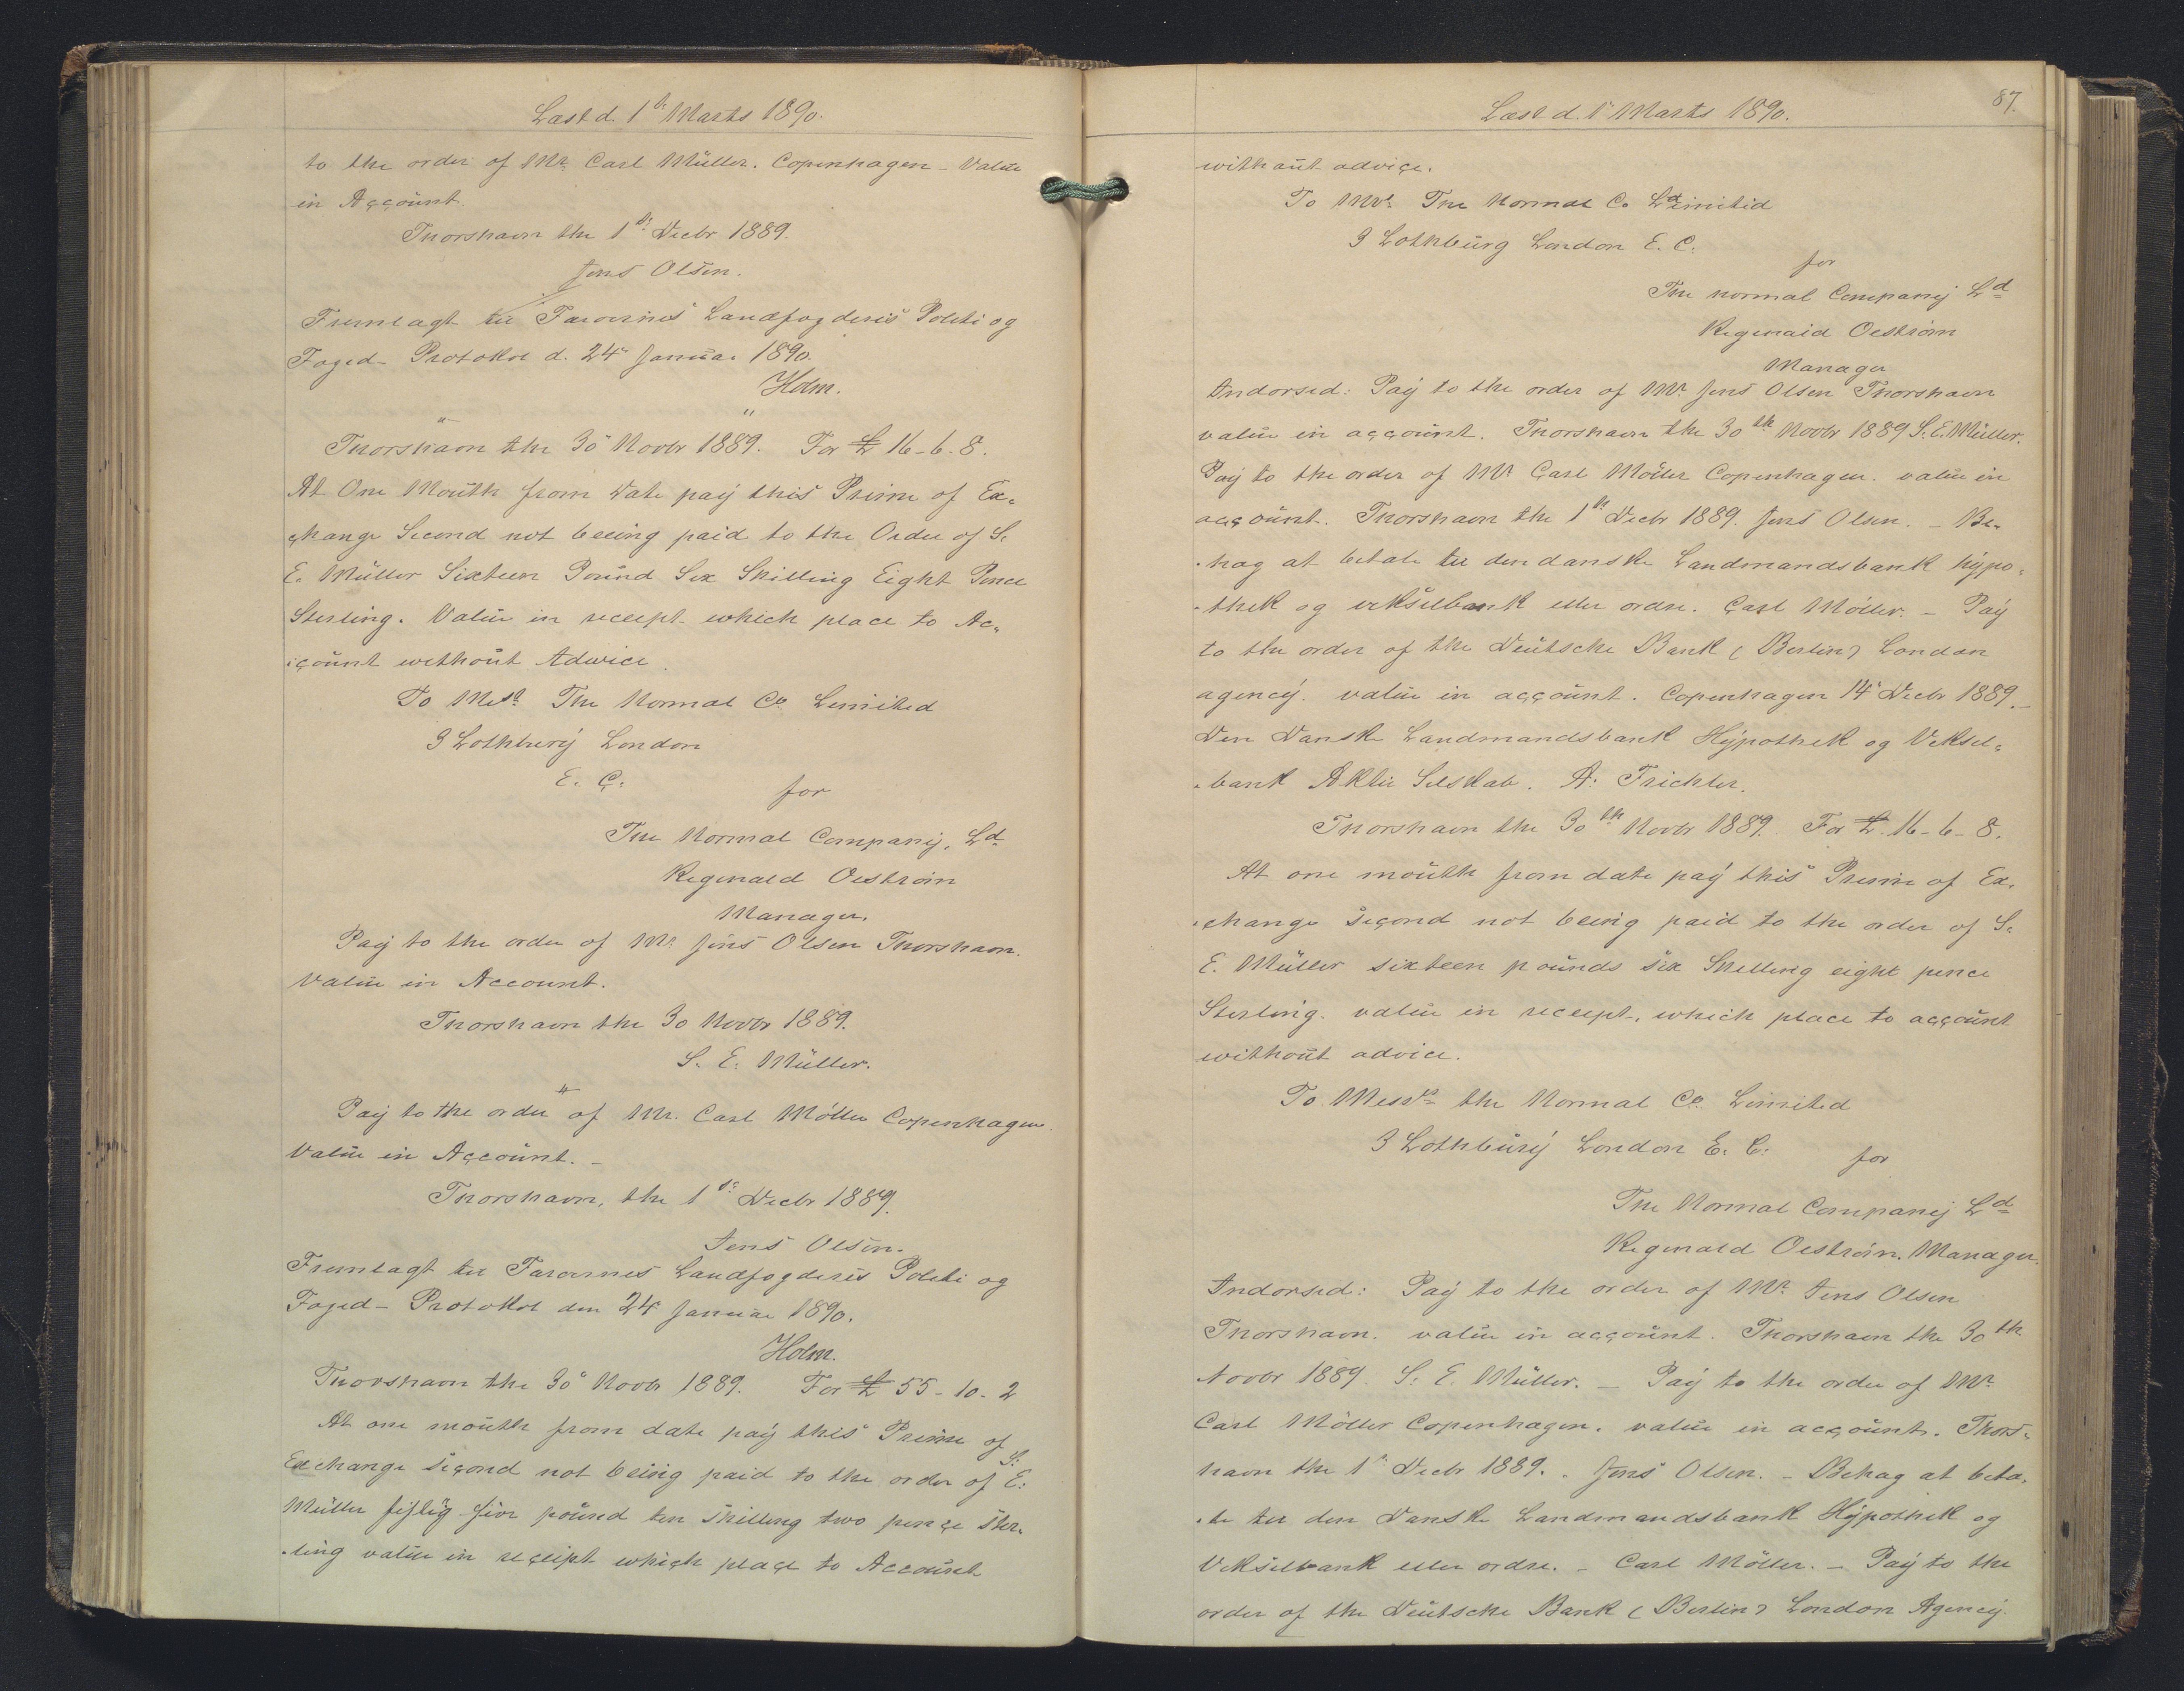 Læst d. 1' Marts 1890.
to the order of Mr. Carl Müller. Copenhagen - Value
in Account.
Thorshavn the 1st Decbr 1889.
Jens Olsen.
Fremlagt til Færøernes Landfogderis Politi og
Foged- Protokol d. 24' Januar 1890.
Holm.
" "
Thorshavn the 30' Novbr 1889. For £ 16-6-8.
At One Month from date pay this Prime of Ex-
change Second not beeing paid to the Order of S.
E. Müller Sixteen Pound Six Skilling Eight Pence
Sterling. Value in receipt which place to Ac-
count without Adwice.
To Mess. The Normal Co. Limited
3 Lothbury London
E. C.
for
The Normal Company, Ld
Reginald Oeström
Manager.
Pay to the order of Mr. Jens Olsen Thorshavn.
Value in Account.
Thorshavn the 30 Novbr 1889.
S. E. Müller.
Pay to the order of Mr. Carl Möller Copenhagen.
Value in Account. -
Thorshavn, the 1st Decbr 1889.
Jens Olsen.
Fremlagt til Færøernes Landfogderis Politi og
Foged- Protokol den 24' Januar 1890.
Holm.
Thorshavn the 30' Novbr 1889. For £ 55-10-2
At one month from date pay this Prime of
Exchange second not being paid to the order of S. E.
Müller fiftig five pound ten skilling two pence ster-
ling value in receipt which place to Account
Læst d. 1' Marts 1890.
87.
without advice.
To Mrs. The Normal Co Limitid
3 Lothburg London E. C.
for
The normal Company Ld
Reginald Oeström
Manager
Indorsed: Pay to the order of Mr. Jens Olsen Thorshavn
value in account. Thorshavn the 30th Novbr 1889 S. E. Müller.
Pay to the order of Mr Carl Möller Copenhagen. value in
account. Thorshavn the 1st Decbr 1889. Jens Olsen. - Be-
hag at betale til den danske Landmandsbank hypo-
thek og vekselbank eller ordre. Carl Möller. - Pay
to the order of the Deutsche Bank (Berlin) London
agency. value in account. Copenhagen 14' Decbr 1889.-
Den Danske Landmandsbank Hypothek og Veksel-
bank Aktie Selskab. A: Trichler.
Thorshavn the 30th Novbr 1889. For £. 16-6-8.
At one month from date pay this Prime of Ex-
change second not being paid to the order of S.
E. Müller sixteen pounds six Skelling eight pence
Sterling. value in receipt, which place to account
without advice.
To Messrs the Normal Co. Limited
3 Lothbury London E. C.
for
The Normal Company Ld
Reginald Oeström. Manager.
Indorsed: Pay to the order of Mr. Jens Olsen
Thorshavn. value in account. Thorshavn the 30th
Novbr 1889. S. E. Müller. - Pay to the order of Mr.
Carl Möller Copenhagen. value in account. Thors-
havn the 1st Decbr 1889. Jens Olsen. - Behag at beta-
le til den Danske Landmandsbank Hypothek og
Vekselbank eller ordre. - Carl Möller. - Pay to the
order of the Deutsche Bank (Berlin) London Agency